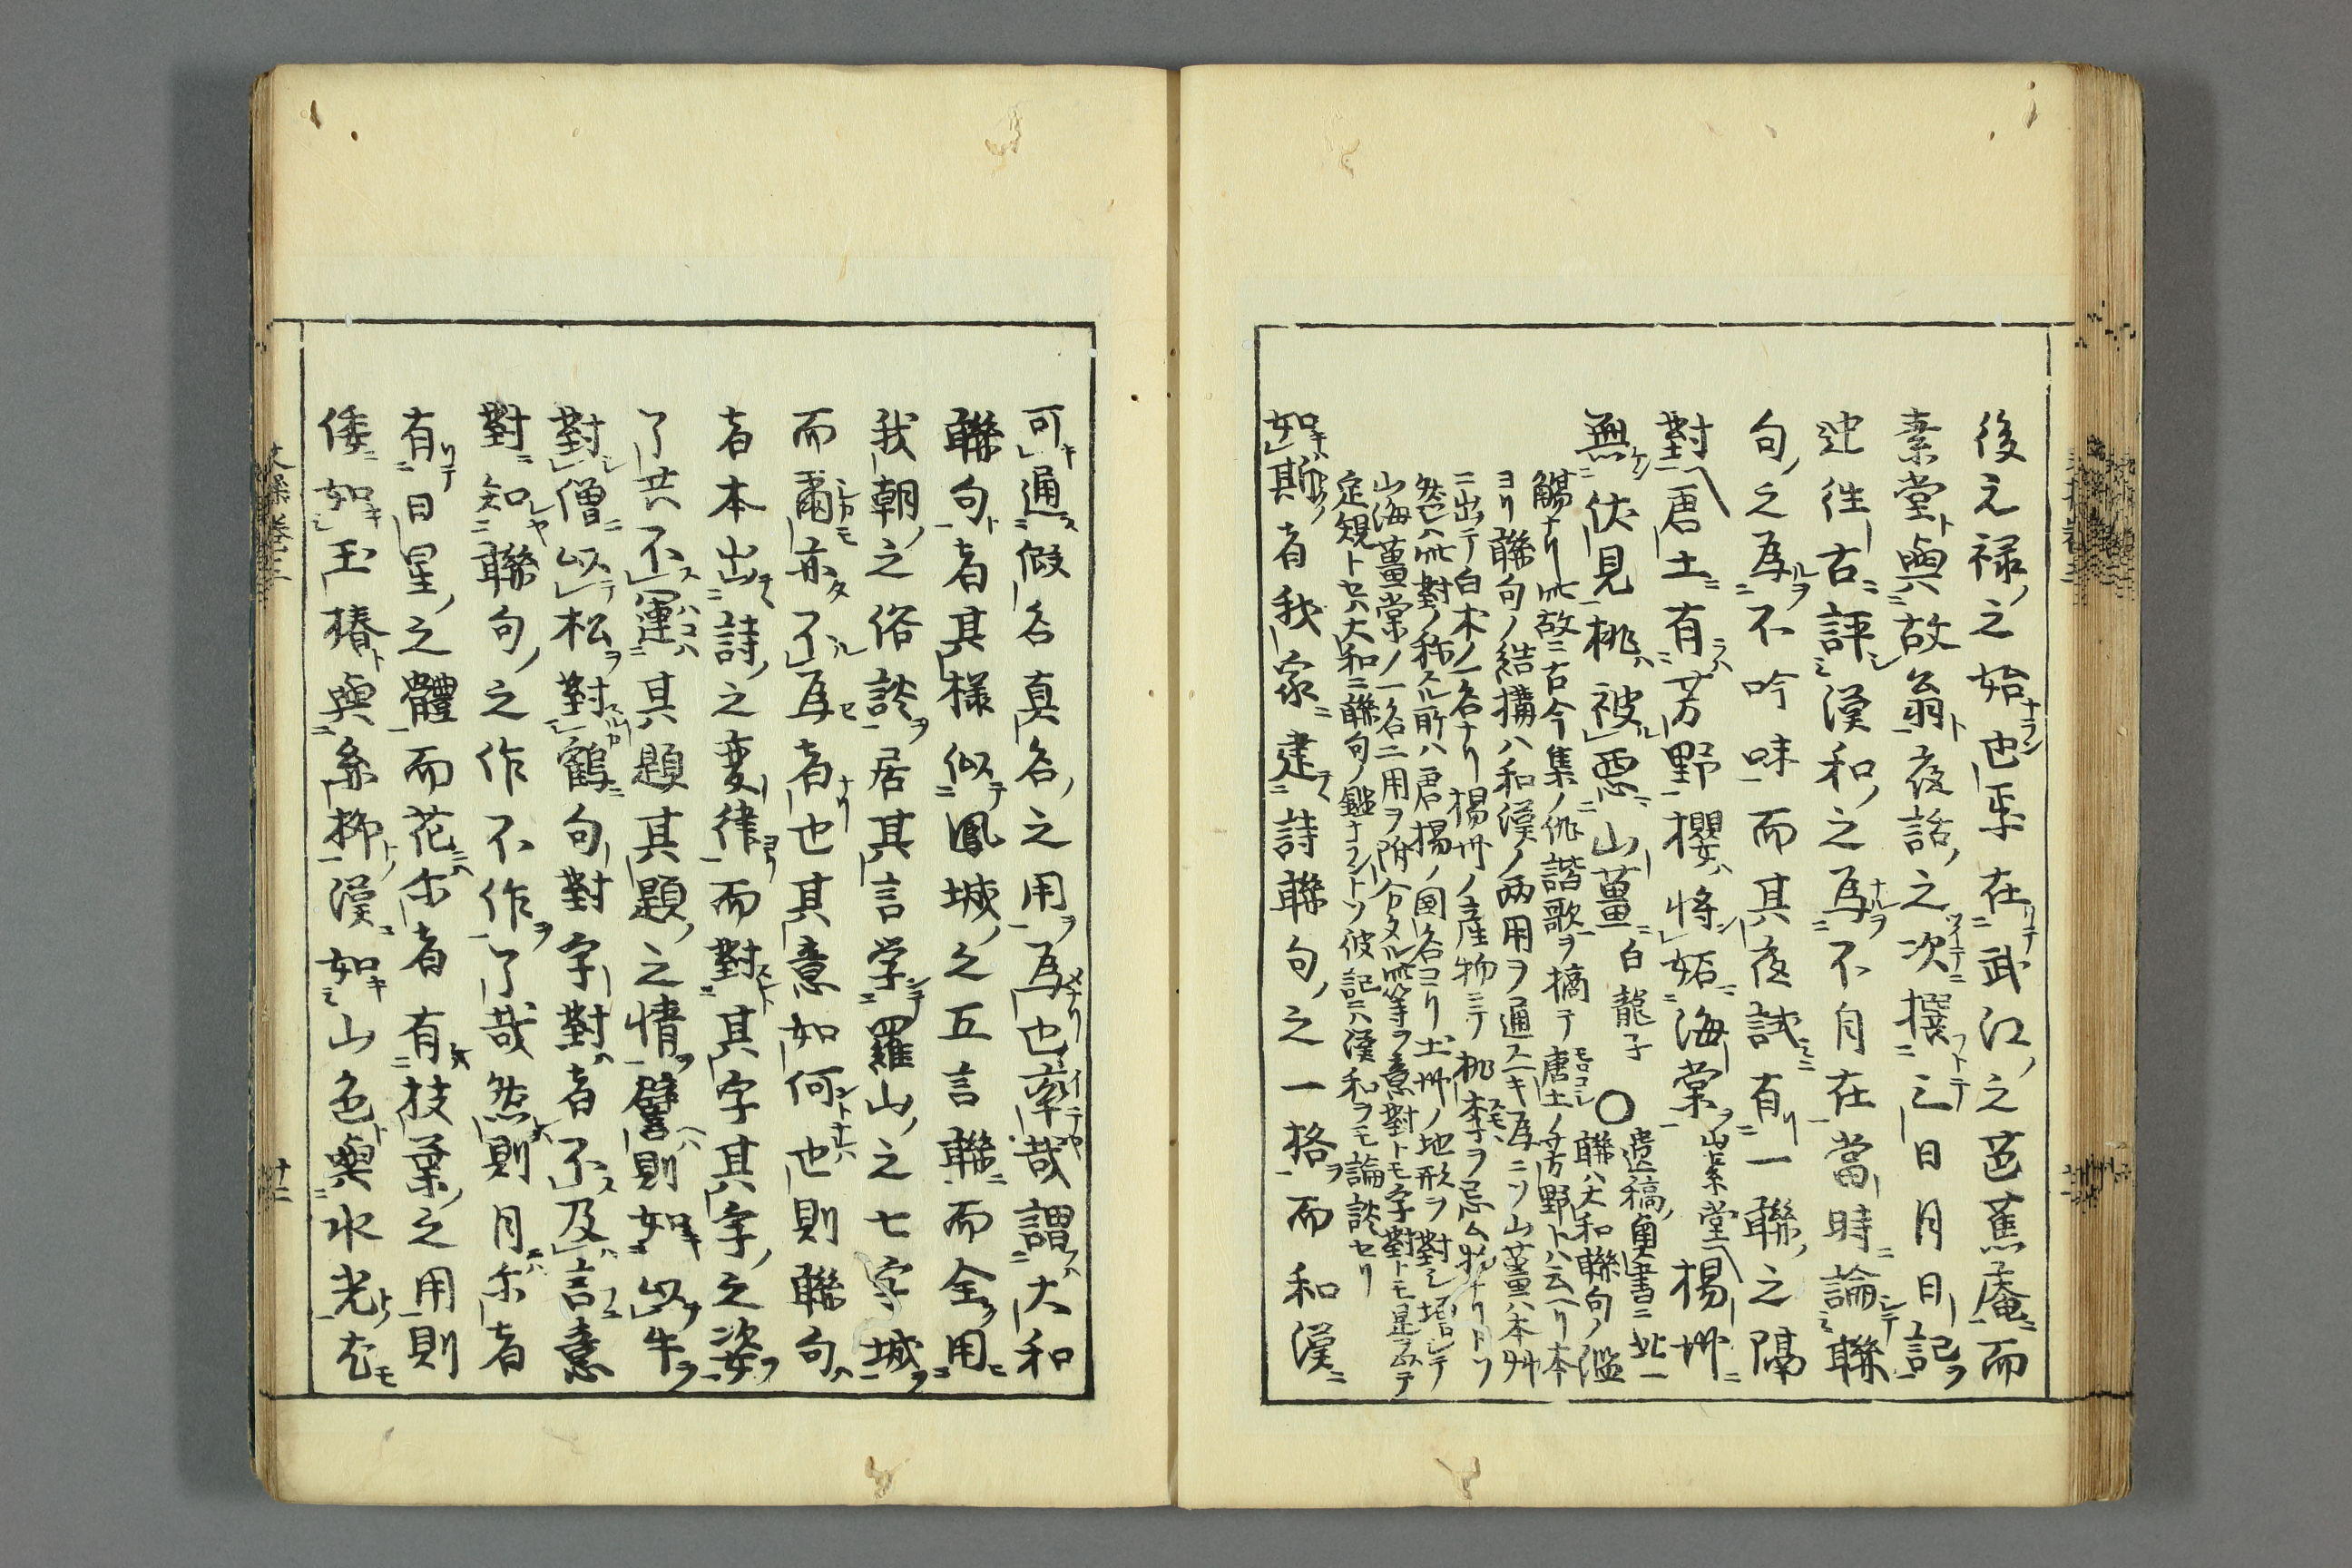 後元禄之始也乎在武江之芭蕉庵而
素堂與故翁夜話之次撰亡日月日記
迚往古評漢和之為不自在當時論聯
句之為不吟味而其夜試有一聯之隔
對唐土有芳野櫻將妬海棠 素堂 楊州
無伏見桃被惡山薑 白龍子 ○遺稿奥書ニ此一
聯ハ大和聯句ノ濫
觴ナリ此故ニ古今集ノ俳諧歌ヲ摘テ唐土ノ芳野トハ云ヘリ本
ヨリ聯句ノ結構ハ和漢ノ両用ヲ通スヘキ為ニソ山薑ハ本艸
ニ出テ白木ノ一名ナリ楊州ノ産物ニテ桃李ヲ忌ム物ナリトソ
然レハ此對ノ称スル所ハ唐楊ノ國名ヨリ土州ノ地形ヲ對シ増シテ
山海薑棠ノ一名ニ用ヲ附合タル此等ヲ意對トモ字對トモ是ヲ以テ
定規トセハ大和ニ聯句ノ鑑ナラントソ彼記ニハ漢和ヲモ論談セリ
如斯者我家建詩聯句之一格而和漢
可通假名真名之用為也率哉謂大和
聯句者其様似鳳城之五言聯而全用
我朝之俗談居其言学羅山之七字城
而爾亦了為者也其意如何也則聯句
者本出詩之変律而對其字其字之姿
了共不運其題其題之情譬則如以牛
對僧以松對鶴句對字對者不及言意
對知聯句之作不作了哉然則月尓者
有日星之體而花尓者有枝葉之用則
倭如玉椿與糸柳漢如山色與水光尤
文操巻三
十二